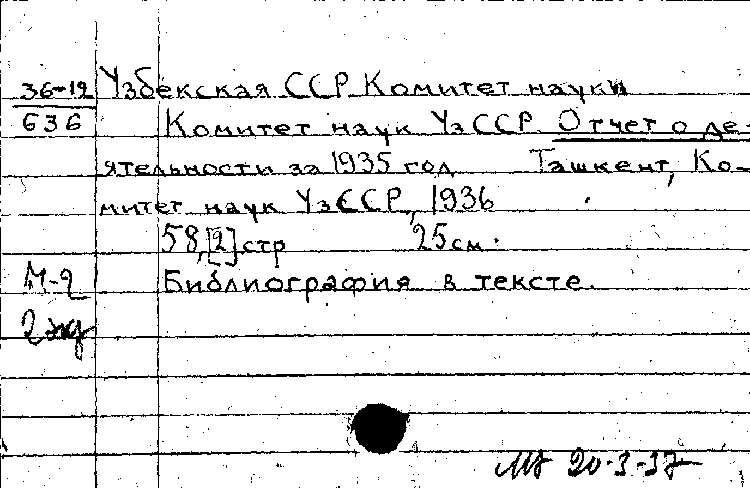 36-12 Узбекская ССР Комитет науки
636 Комитет наук УзССР. Отчет о де-
ятельности за 1935 год Ташкент, Ко-
митет наук УзССР, 1936
58,[2] стр 25 см.
М-2 Библиография в тексте.
2 экз
20-3-37